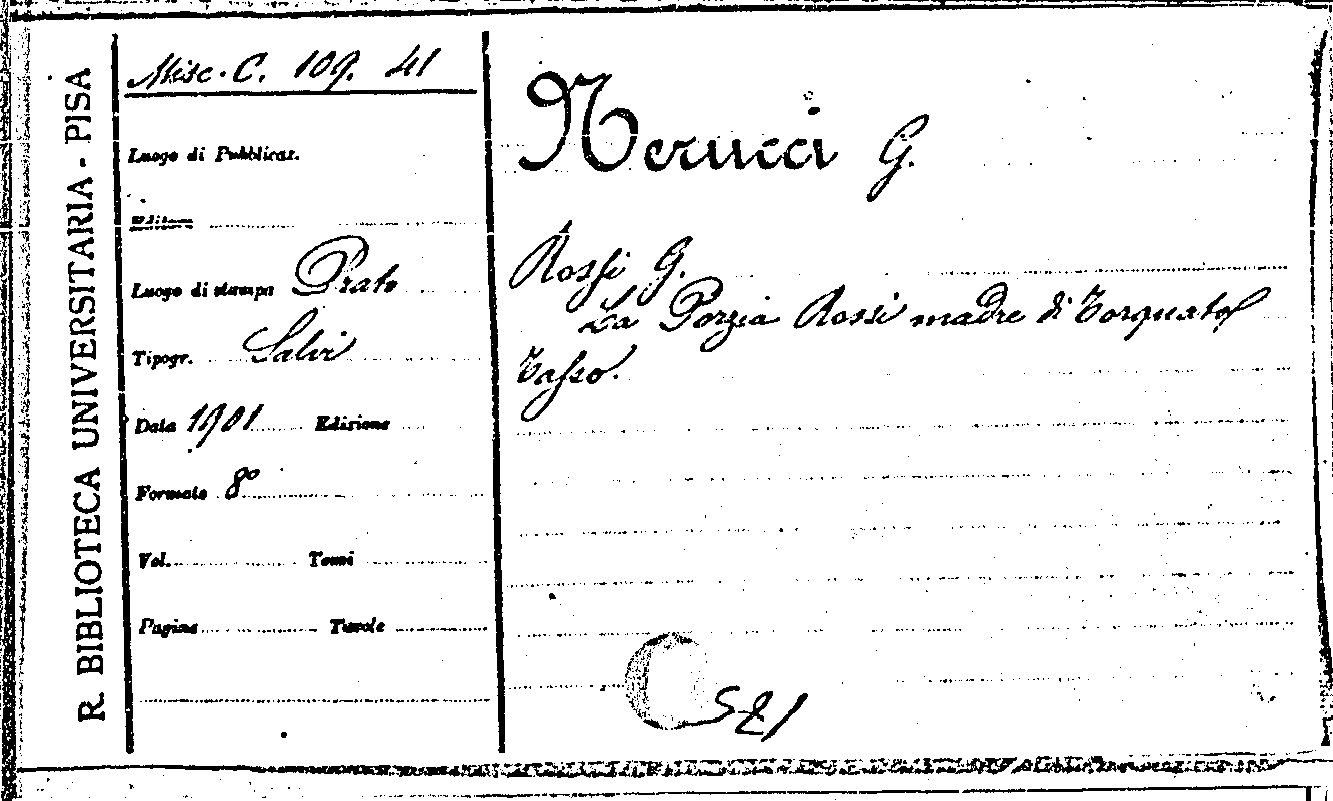 R. BIBLIOTECA UNIVERSITARIA - PISA
Misc. C. 109. 41
Luogo di Pubblicaz.
Editore
Luogo di stampa Prato
Tipogr. Salvi
Data 1901 Edizione
Formato 8º
Vol. Tomi
Pagine Tavole
Nerucci G.
Rossi G.
La Porzia Rossi madre di Torquato
Tasso.
521